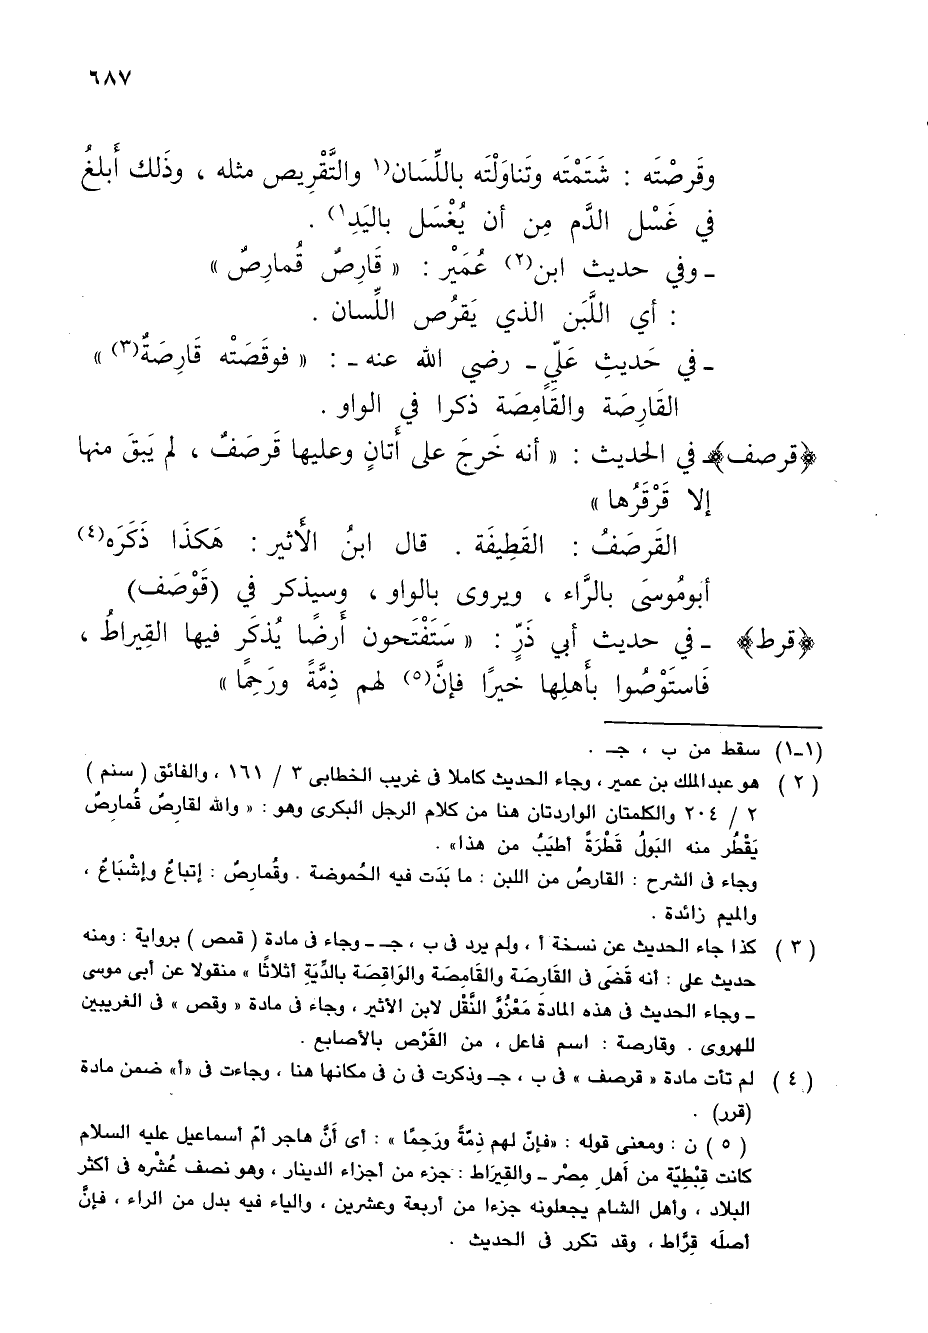 ٦٨٧
وقَرصْتَه : شَتَمْتَه وتَناوَلْتَه باللِّسَان(١ والتَّقْرِيص مثله ، وذَلك أَبلغُ
في غَسْل الدَّم مِن أن يُغْسَل باليَدِ١) .
ـ وفي حديث ابن(٢) عُمَيْر : « قَارِصٌ قُمارِصٌ »
: أي اللَّبَن الذي يَقرُص اللِّسان .
ـ في حَديثِ عَلّيٍ ـ رضي الله عنه ـ : « فوقَصَتْه قَارِصَةٌ(٣) »
القَارِصَة والقَامِصَة ذكرا في الواو .
﴿قرصف﴾ـ في الحديث : « أنه خَرجَ على أَتانٍ وعليها قَرصَفٌ ، لم يَبقَ منها
إلا قَرْقَرُها »
القَرصَفُ : القَطِيفَة . قال ابنُ الأَثير : هَكذَا ذَكَرَه(٤)
أبومُوسَى بالرَّاء ، ويروى بالواو ، وسيذكر في (قَوْصَف)
﴿قرط﴾ ـ في حديث أبي ذَرٍّ : « سَتَفْتَحون أَرضًا يُذكَر فيها القِيراطُ ،
فَاستَوْصُوا بأَهلِها خيرًا فإنَّ(٥) لهم ذِمَّةً ورَحِمًا »
(١ـ١) سقط من ب ، جـ .
(٢) هو عبدالملك بن عمير ، وجاء الحديث كاملا فى غريب الخطابى ٣ / ١٦١ ، والفائق ( سنم )
٢ / ٢٠٤ والكلمتان الواردتان هنا من كلام الرجل البكرى وهو : « والله لقارصٌ قُمارصٌ
يَقْطُر منه البَولُ قَطْرَةً أطيَبُ من هذا» .
وجاء فى الشرح : القارصُ من اللبن : ما بَدَت فيه الحُموضة . وقُمارصٌ : إتباعٌ وإشْباعٌ ،
والميم زائدة .
(٣) كذا جاء الحديث عن نسخة أ ، ولم يرد فى ب ، جـ ـ وجاء فى مادة ( قمص ) برواية : ومنه
حديث على : أنه قَضَى فى القَارِصَة والقَامِصَة والوَاقِصَة بالدِّيَةِ أثلاثًا » منقولا عن أبى موسى
ـ وجاء الحديث فى هذه المادة مَعْزُوَّ النَّقْل لابن الأثير ، وجاء فى مادة « وقص » فى الغريبين
للهروى . وقارصة : اسم فاعل ، من القَرْص بالأصابع .
(٤) لم تأت مادة « قرصف » فى ب ، جـ وذكرت فى ن فى مكانها هنا ، وجاءت فى «أ» ضمن مادة
(قرر) .
(٥) ن : ومعنى قوله : «فإنّ لهم ذِمَّةً ورَحِمًا » : أى أَنَّ هاجر أمّ أسماعيل عليه السلام
كانت قِبْطيّة من أَهل مِصْر ـ والقِيَراط : جزء من أجزاء الدينار ، وهو نصف عُشْره فى أكثر
البلاد ، وأهل الشام يجعلونه جزءا من أربعة وعشرين ، والياء فيه بدل من الراء ، فإنَّ
أصلَه قِرَّاط ، وقد تكرر فى الحديث .